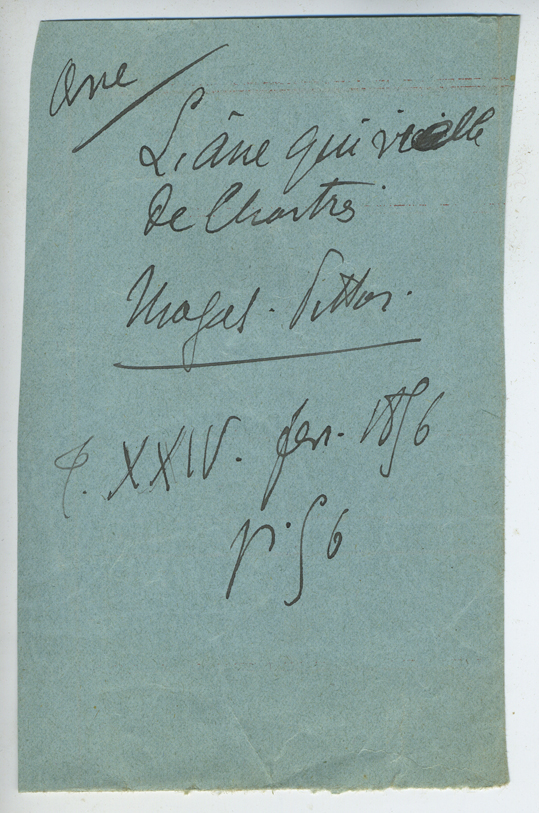 Ane
L'âne qui vielle
de Chartres
Magas. Pittor.
T. XXIV. fev. 1856
p. 56